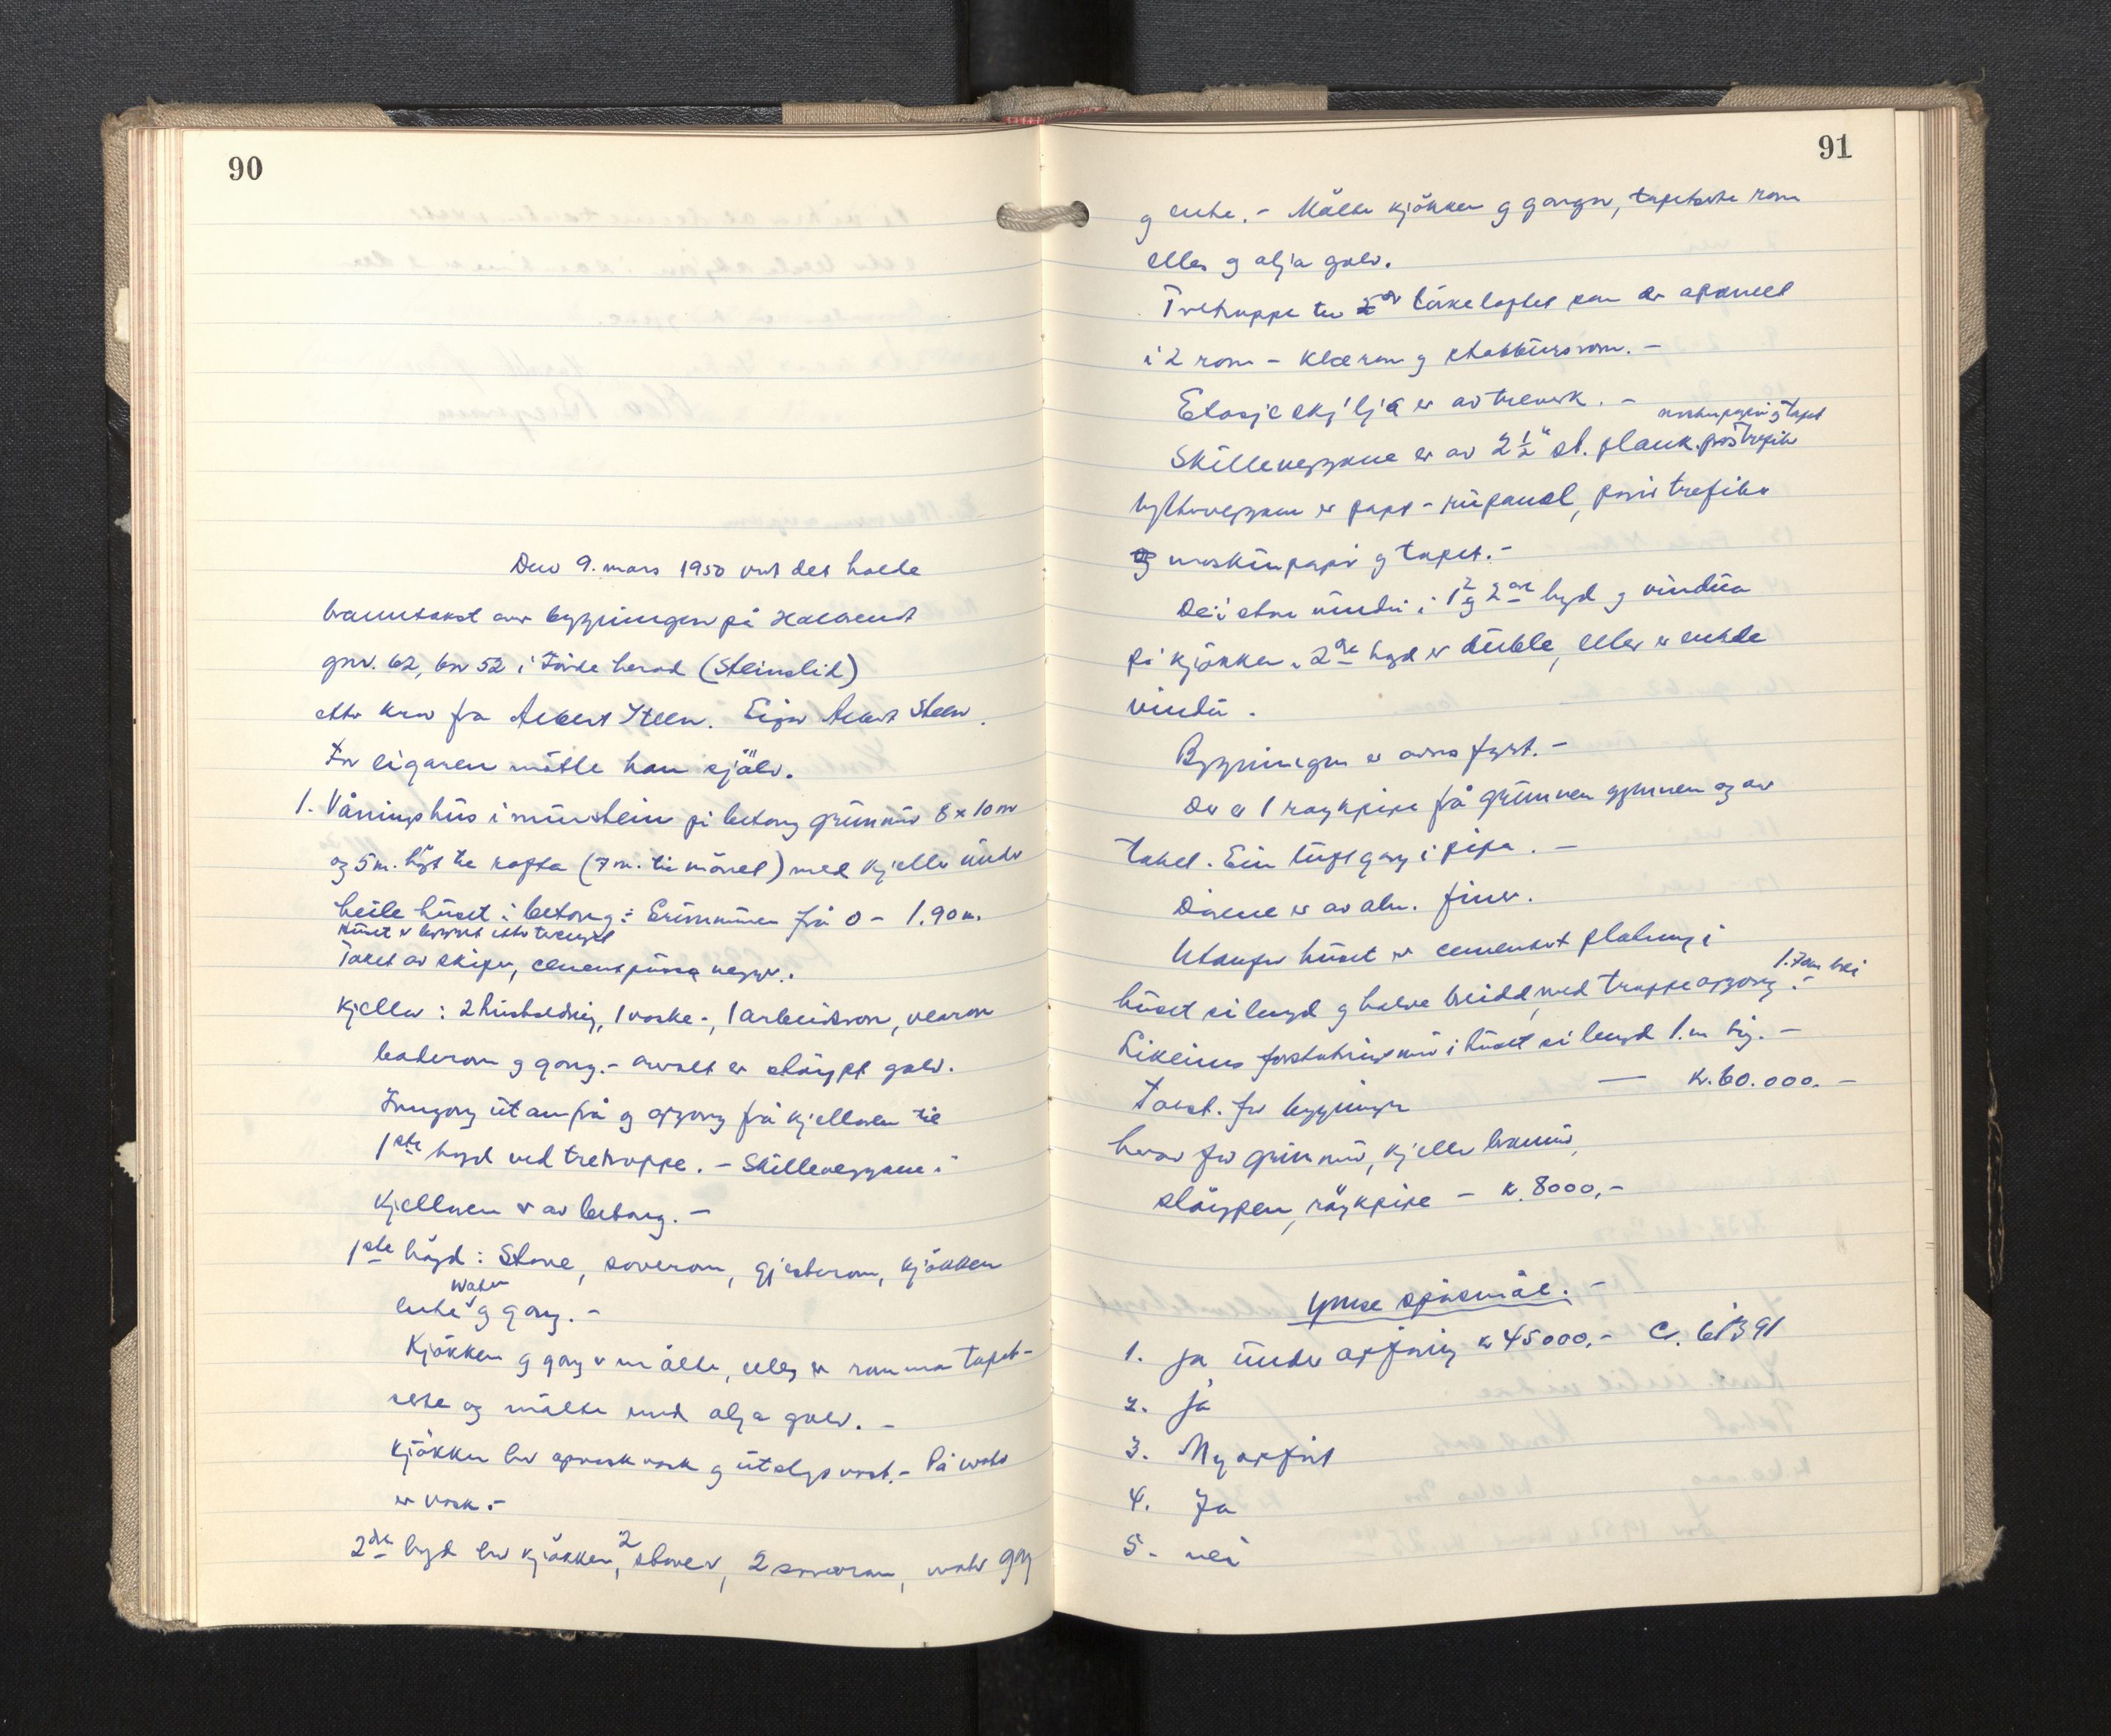 90
Den 9. mars 1950 vart det halde
branntakst over bygningen på Halbrend
gnr. 62, bnr 52 i Førde herad (Steinslid)
etter krav fra Albert Steen. Eigar Albert Steen.
For eigaren møtte han sjölv.
1. Våningshus i murstein på betong grunnmur 8 x 10 m
og 5 m. högt til rafta (7 m. til mönet) med kjeller under
heile huset i betong: Grunnmuren frå 0 - 1.90 m.
Huset er bygget etter
Taket av skifer, cementpussa vegger.
Kjeller: 2 hushaldning, 1 vaske-, 1 arbeidsrom,
baderom og gang. - overalt er støypt golv.
Inngang utanfrå og oppgang frå kjelleren til
1ste høgd ved tretrappe. - Skilleveggane i
kjelleren er av betong. -
1ste högd: Stove, soverom, gjesterom, kjökken
water
entre og gang. -
Kjökken og gang er målte, elles er romma tapet-
serte og målte med olja golv. -
Kjökken har oppvaskvask og utslagsvask. - På water
er vask. -
2dre høgd har kjökken, 2 stover, 2 soverom, water gang
91
og entre. - Målte kjökken og ganger, tapetserte rom
elles og olja golv.
Tretrappe til törkeloftet som er oppdeelt
i 2 rom - klærom og stabbursrom. -
Etasjeskilja er av treverk. -
maskinpapir og tapet
Skilleveggane er av 2 1/2" st. plank. porøs trefiber
yttervegger er papp - rupanel, porøs trefiber
og maskinpapir og tapet. -
Dei store vindu i 1 og 2dre høgd og vindua
på kjökken i 2dre høgd er duble, elles er enkle
vindu.
Bygningen er avsa fyrt. -
Der er 1 røykpipe frå grunnen gjennom og av
taket. Ein luftgang i pipa. -
Dörene er av alm. finer.
Utanfor huset er cementert platning i
1.70 m brei
huset si lengd og halve breidd, med trappeoppgang. -
Likeins forstøtningsmur i huset si lengd 1. m høg. -
Takst. for bygningen — kr. 60.000. -
herav for grunnmur, kjeller brannmur,
støypen, røykpipe - kr. 8000,-
Ymse spörsmål. -
1. Ja, under oppføring kr 45000.- C. 61391
2. Ja
3. Ny oppført
4. Ja
5. nei